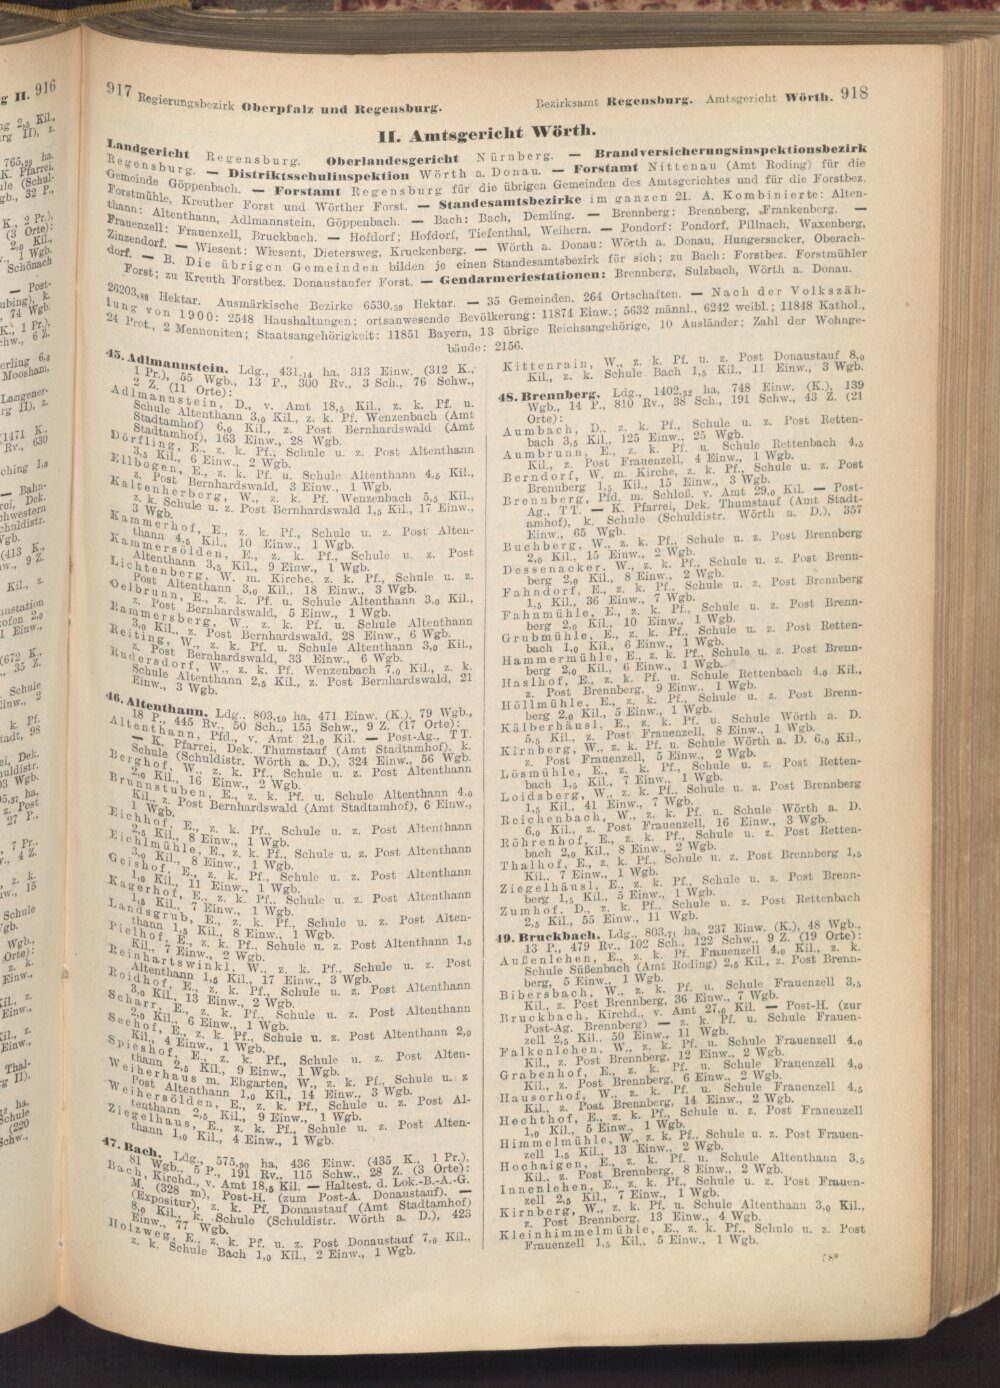 917 Regierungsbezirk Oberpfalz und Regensburg.
Bezirksamt Regensburg. Amtsgericht Wörth. 918
II. Amtsgericht Wörth.
Landgericht Regensburg. Oberlandesgericht Nürnberg. — Brandversicherungsinspektionsbezirk
Regensburg. — Distriktsschulinspektion Wörth a. Donau. — Forstamt Nittenau (Amt Roding) für die
Gemeinde Göppenbach. — Forstamt Regensburg für die übrigen Gemeinden des Amtsgerichtes und für die Forstbez.
Forstmühle, Kreuther Forst und Wörther Forst. — Standesamtsbezirke im ganzen 21. A. Kombinierte: Alten-
thann: Altenthann, Adlmannstein, Göppenbach. — Bach: Bach, Demling. — Brennberg: Brennberg, Frankenberg. —
Frauenzell: Frauenzell, Bruckbach. — Hofdorf; Hofdorf, Tiefenthal, Weihern. — Pondorf: Pondorf, Pillnach, Waxenberg,
Zinzendorf. — Wiesent: Wiesent, Dietersweg, Kruckenberg. — Wörth a. Donau: Wörth a. Donau, Hungersacker, Oberach-
dorf. — B. Die übrigen Gemeinden bilden je einen Standesamtsbezirk für sich; zu Bach: Forstbez. Forstmühler
Forst; zu Kreuth Forstbez. Donaustaufer Forst. — Gendarmeriestationen: Brennberg, Sulzbach, Wörth a. Donau.
26203,88 Hektar. Ausmärkische Bezirke 6530,59 Hektar. — 35 Gemeinden, 264 Ortschaften. — Nach der Volkszäh-
lung von 1900: 2548 Haushaltungen; ortsanwesende Bevölkerung: 11874 Einw.; 5632 männl., 6242 weibl.; 11848 Kathol.,
24 Prot., 2 Mennoniten; Staatsangehörigkeit: 11851 Bayern, 13 übrige Reichsangehörige, 10 Ausländer; Zahl der Wohnge-
bäude: 2156.
45. Adlmannstein. Ldg., 431,14 ha, 313 Einw. (312 K.,
1 Pr.), 55 Wgb., 13 P., 300 Rv., 3 Sch., 76 Schw.,
2 Z. (11 Orte):
Adlmannstein, D., v. Amt 18,5 Kil., z. k. Pf. u.
Schule Altenthann 3,0 Kil., z. k. Pf. Wenzenbach (Amt
Stadtamhof) 6,0 Kil., z. Post Bernhardswald (Amt
Stadtamhof), 163 Einw., 28 Wgb.
Dörfling, E., z. k. Pf., Schule u. z. Post Altenthann
3,5 Kil., 6 Einw., 2 Wgb.
Ellbogen, E., z. k. Pf. u. Schule Altenthann 4,5 Kil.,
z. Post Bernhardswald, 3 Einw., 1 Wgb.
Kaltenherberg, W., z. k. Pf. Wenzenbach 5,5 Kil.,
z. k. Schule u. z. Post Bernhardswald 1,5 Kil., 17 Einw.,
3 Wgb.
Kammerhof, E., z. k. Pf., Schule u. z. Post Alten-
thann 4,5 Kil., 10 Einw., 1 Wgb.
Kammersölden, E., z. k. Pf., Schule u. z. Post
Altenthann 3,5 Kil., 9 Einw., 1 Wgb.
Lichtenberg, W. m. Kirche, z. k. Pf., Schule u. z.
Post Altenthann 3,0 Kil., 18 Einw., 3 Wgb.
Oelbrunn, E., z. k. Pf. u. Schule Altenthann 3,0 Kil.,
z. Post Bernhardswald, 5 Einw., 1 Wgb.
Rammersberg, W., z. k. Pf. u. Schule Altenthann
3,0 Kil., z. Post Bernhardswald, 28 Einw., 6 Wgb.
Reiting, W., z. k. Pf. u. Schule Altenthann 3,0 Kil.,
z. Post Bernhardswald, 33 Einw., 6 Wgb.
Rudersdorf, W., z. k. Pf. Wenzenbach 7,0 Kil., z. k.
Schule Altenthann 2,5 Kil., z. Post Bernhardswald, 21
Einw., 3 Wgb.
46. Altenthann. Ldg., 803,10 ha, 471 Einw. (K.), 79 Wgb.,
18 P., 445 Rv., 50 Sch., 155 Schw., 9 Z. (17 Orte):
Altenthann, Pfd., v. Amt 21,0 Kil. — Post-Ag., TT.
— K. Pfarrei, Dek. Thumstauf (Amt Stadtamhof), k.
Schule (Schuldistr. Wörth a. D.), 324 Einw., 56 Wgb.
Berghof, W., z. k. Pf., Schule u. z. Post Altenthann
2,0 Kil., 16 Einw., 2 Wgb.
Brunnstuben, E., z. k. Pf. u. Schule Altenthann 4,0
Kil., z. Post Bernhardswald (Amt Stadtamhof), 6 Einw.,
1 Wgb.
Eichhof, E., z. k. Pf., Schule u. z. Post Altenthann
2,5 Kil., 8 Einw., 1 Wgb.
Eichlmühle, E., z. k. Pf., Schule u. z. Post Altenthann
3,0 Kil., 8 Einw., 1 Wgb.
Geishof, E., z. k. Pf., Schule u. z. Post Altenthann
1,0 Kil., 11 Einw., 1 Wgb.
Kagerhof, E., z. k. Pf., Schule u. z. Post Altenthann
1,5 Kil., 7 Einw., 1 Wgb.
Landsgrub, E., z. k. Pf., Schule u. z. Post Alten-
thann 1,5 Kil., 8 Einw., 1 Wgb.
Pielhof, E., z. k. Pf., Schule u. z. Post Altenthann 1,5
Kil., 7 Einw., 2 Wgb.
Reinhartswinkl, W., z. k. Pf., Schule u. z. Post
Altenthann 1,5 Kil., 17 Einw., 3 Wgb.
Roidhof, E., z. k. Pf., Schule u. z. Post Altenthann
3,0 Kil., 13 Einw., 2 Wgb.
Scharr, E., z. k. Pf., Schule u. z. Post Altenthann
2,0 Kil., 6 Einw., 1 Wgb.
Seehof, E., z. k. Pf., Schule u. z. Post Altenthann 2,0
Kil., 4 Einw., 1 Wgb.
Spieshof, E., z. k. Pf., Schule u. z. Post Alten-
thann 2,5 Kil., 9 Einw., 1 Wgb.
Weiherhaus m. Ehgarten, W., z. k. Pf., Schule u. z
Post Altenthann 1,0 Kil., 14 Einw., 3 Wgb.
Weihersölden, E., z. k. Pf., Schule u. z. Post Al-
tenthann 2,5 Kil., 9 Einw., 1 Wgb.
Ziegelhaus, E., z. k. Pf., Schule u. z. Post Alten-
thann 1,0 Kil., 4 Einw., 1 Wgb.
47. Bach. Ldg., 575,90 ha, 436 Einw. (435 K., 1 Pr.),
81 Wgb., 5 P., 191 Rv., 115 Schw., 28 Z. (3 Orte):
Bach, Kirchd., v. Amt 18,5 Kil. — Haltest. d. Lok.-B.-A.-G.
M. (328 m), Post-H. (zum Post-A. Donaustauf). —
(Expositur), z. k. Pf. Donaustauf (Amt Stadtamhof)
8,0 Kil., k. Schule (Schuldistr. Wörth a. D.), 423
Einw., 77 Wgb.
Holzweg, E., z. k. Pf. u. z. Post Donaustauf 7,0 Kil.,
z. k. Schule Bach 1,0 Kil., 2 Einw., 1 Wgb.
Kittenrain, W., z. k. Pf. u. z. Post Donaustauf 8,0
Kil., z. k. Schule Bach 1,5 Kil., 11 Einw., 3 Wgb.
48. Brennberg. Ldg., 1402,32 ha, 748 Einw. (K.), 139
Wgb., 14 P., 810 Rv., 38 Sch., 191 Schw., 43 Z. (21
Orte):
Aumbach, D., z. k. Pf., Schule u. z. Post Retten-
bach 3,5 Kil., 125 Einw., 25 Wgb.
Aumbrunn, E., z. k. Pf. u. Schule Rettenbach 4,5
Kil., z. Post Frauenzell, 4 Einw., 1 Wgb.
Berndorf, W. m. Kirche, z. k. Pf., Schule u. z. Post
Brennberg 1,5 Kil., 15 Einw., 3 Wgb.
Brennberg, Pfd. m. Schloß, v. Amt 29,0 Kil. — Post-
Ag., TT. — K. Pfarrei, Dek. Thumstauf (Amt Stadt-
amhof), k. Schule (Schuldistr. Wörth a. D.), 357
Einw., 65 Wgb.
Buchberg, W., z. k. Pf., Schule u. z. Post Brennberg
2,0 Kil., 15 Einw., 2 Wgb.
Dessenacker, W., z. k. Pf., Schule u. z. Post Brenn-
berg 2,0 Kil., 8 Einw., 2 Wgb.
Fahndorf, E., z. k. Pf., Schule u. z. Post Brennberg
1,5 Kil., 36 Einw., 7 Wgb.
Fahnmühle, E., z. k. Pf., Schule u. z. Post Brenn-
berg 2,0 Kil., 10 Einw., 1 Wgb.
Grubmühle, E., z. k. Pf., Schule u. z. Post Retten-
bach 1,0 Kil., 6 Einw., 1 Wgb.
Hammermühle, E., z. k. Pf., Schule u. z. Post Brenn-
berg 2,0 Kil., 6 Einw., 1 Wgb.
Haslhof, E., z. k. Pf. u. Schule Rettenbach 4,0 Kil.,
z. Post Brennberg, 9 Einw., 1 Wgb.
Höllmühle, E., z. k. Pf., Schule u. z. Post Brenn-
berg 2,0 Kil., 5 Einw., 1 Wgb.
Kälberhäusl, E., z. k. Pf. u. Schule Wörth a. D.
5,5 Kil., z. Post Frauenzell, 8 Einw., 1 Wgb.
Kirnberg, W., z. k. Pf. u. Schule Wörth a. D. 6,5 Kil.,
z. Post Frauenzell, 5 Einw., 2 Wgb.
Lösmühle, E., z. k. Pf., Schule u. z. Post Retten-
bach 1,5 Kil., 7 Einw., 1 Wgb.
Loidsberg, W., z. k. Pf., Schule u. z. Post Brennberg
1,5 Kil., 41 Einw., 7 Wgb.
Reichenbach, W., z. k. Pf. u. Schule Wörth a. D.
6,0 Kil., z. Post Frauenzell, 16 Einw., 3 Wgb.
Röhrenhof, E., z. k. Pf., Schule u. z. Post Retten-
bach 2,0 Kil., 8 Einw., 2 Wgb.
Thalhof, E., z. k. Pf., Schule u. z. Post Brennberg 1,5
Kil., 7 Einw., 1 Wgb.
Ziegelhäusl, E., z. k. Pf., Schule u. z. Post Brenn-
berg 1,5 Kil., 5 Einw., 1 Wgb.
Zumhof, D., z. k. Pf., Schule u. z. Post Rettenbach
2,5 Kil., 55 Einw., 11 Wgb.
49. Bruckbach. Ldg., 803,71 ha, 237 Einw. (K.), 48 Wgb.,
13 P., 479 Rv., 102 Sch., 122 Schw., 9 Z. (19 Orte):
Außenlehen, E., z. k. Pf. Frauenzell 4,0 Kil., z. k.
Schule Süßenbach (Amt Roding) 2,5 Kil., z. Post Brenn-
berg, 5 Einw., 1 Wgb.
Bibersbach, W., z. k. Pf. u. Schule Frauenzell 3,5
Kil., z. Post Brennberg, 36 Einw., 7 Wgb.
Bruckbach, Kirchd., v. Amt 27,0 Kil. — Post-H. (zur
Post-Ag. Brennberg) — z. k. Pf. u. Schule Frauen-
zell 2,5 Kil., 50 Einw., 11 Wgb.
Falkenlehen, W., z. k. Pf. u. Schule Frauenzell 4,0
Kil., z. Post Brennberg, 12 Einw., 2 Wgb.
Grabenhof, E., z. k. Pf. u. Schule Frauenzell 4,0
Kil., z. Post Brennberg, 6 Einw., 2 Wgb.
Hauserhof, W., z. k. Pf. u. Schule Frauenzell 4,5
Kil., z. Post Brennberg, 14 Einw., 2 Wgb.
Hechthof, E., z. k. Pf., Schule u. z. Post Frauenzell
1,0 Kil., 5 Einw., 1 Wgb.
Himmelmühle, W., z. k. Pf., Schule u. z. Post Frauen-
zell 1,5 Kil., 13 Einw., 2 Wgb.
Hochaigen, E., z. k. Pf. u. Schule Altenthann 3,5
Kil., z. Post Brennberg, 8 Einw., 2 Wgb.
Innenlehen, E., z. k. Pf., Schule u. z. Post Frauen-
zell 2,5 Kil., 7 Einw., 1 Wgb.
Kirnberg, W., z. k. Pf. u. Schule Altenthann 3,0 Kil.,
z. Post Brennberg, 13 Einw., 4 Wgb.
Kleinhimmelmühle, E., z. k. Pf., Schule u. z. Post
Frauenzell 1,5 Kil., 5 Einw., 1 Wgb.